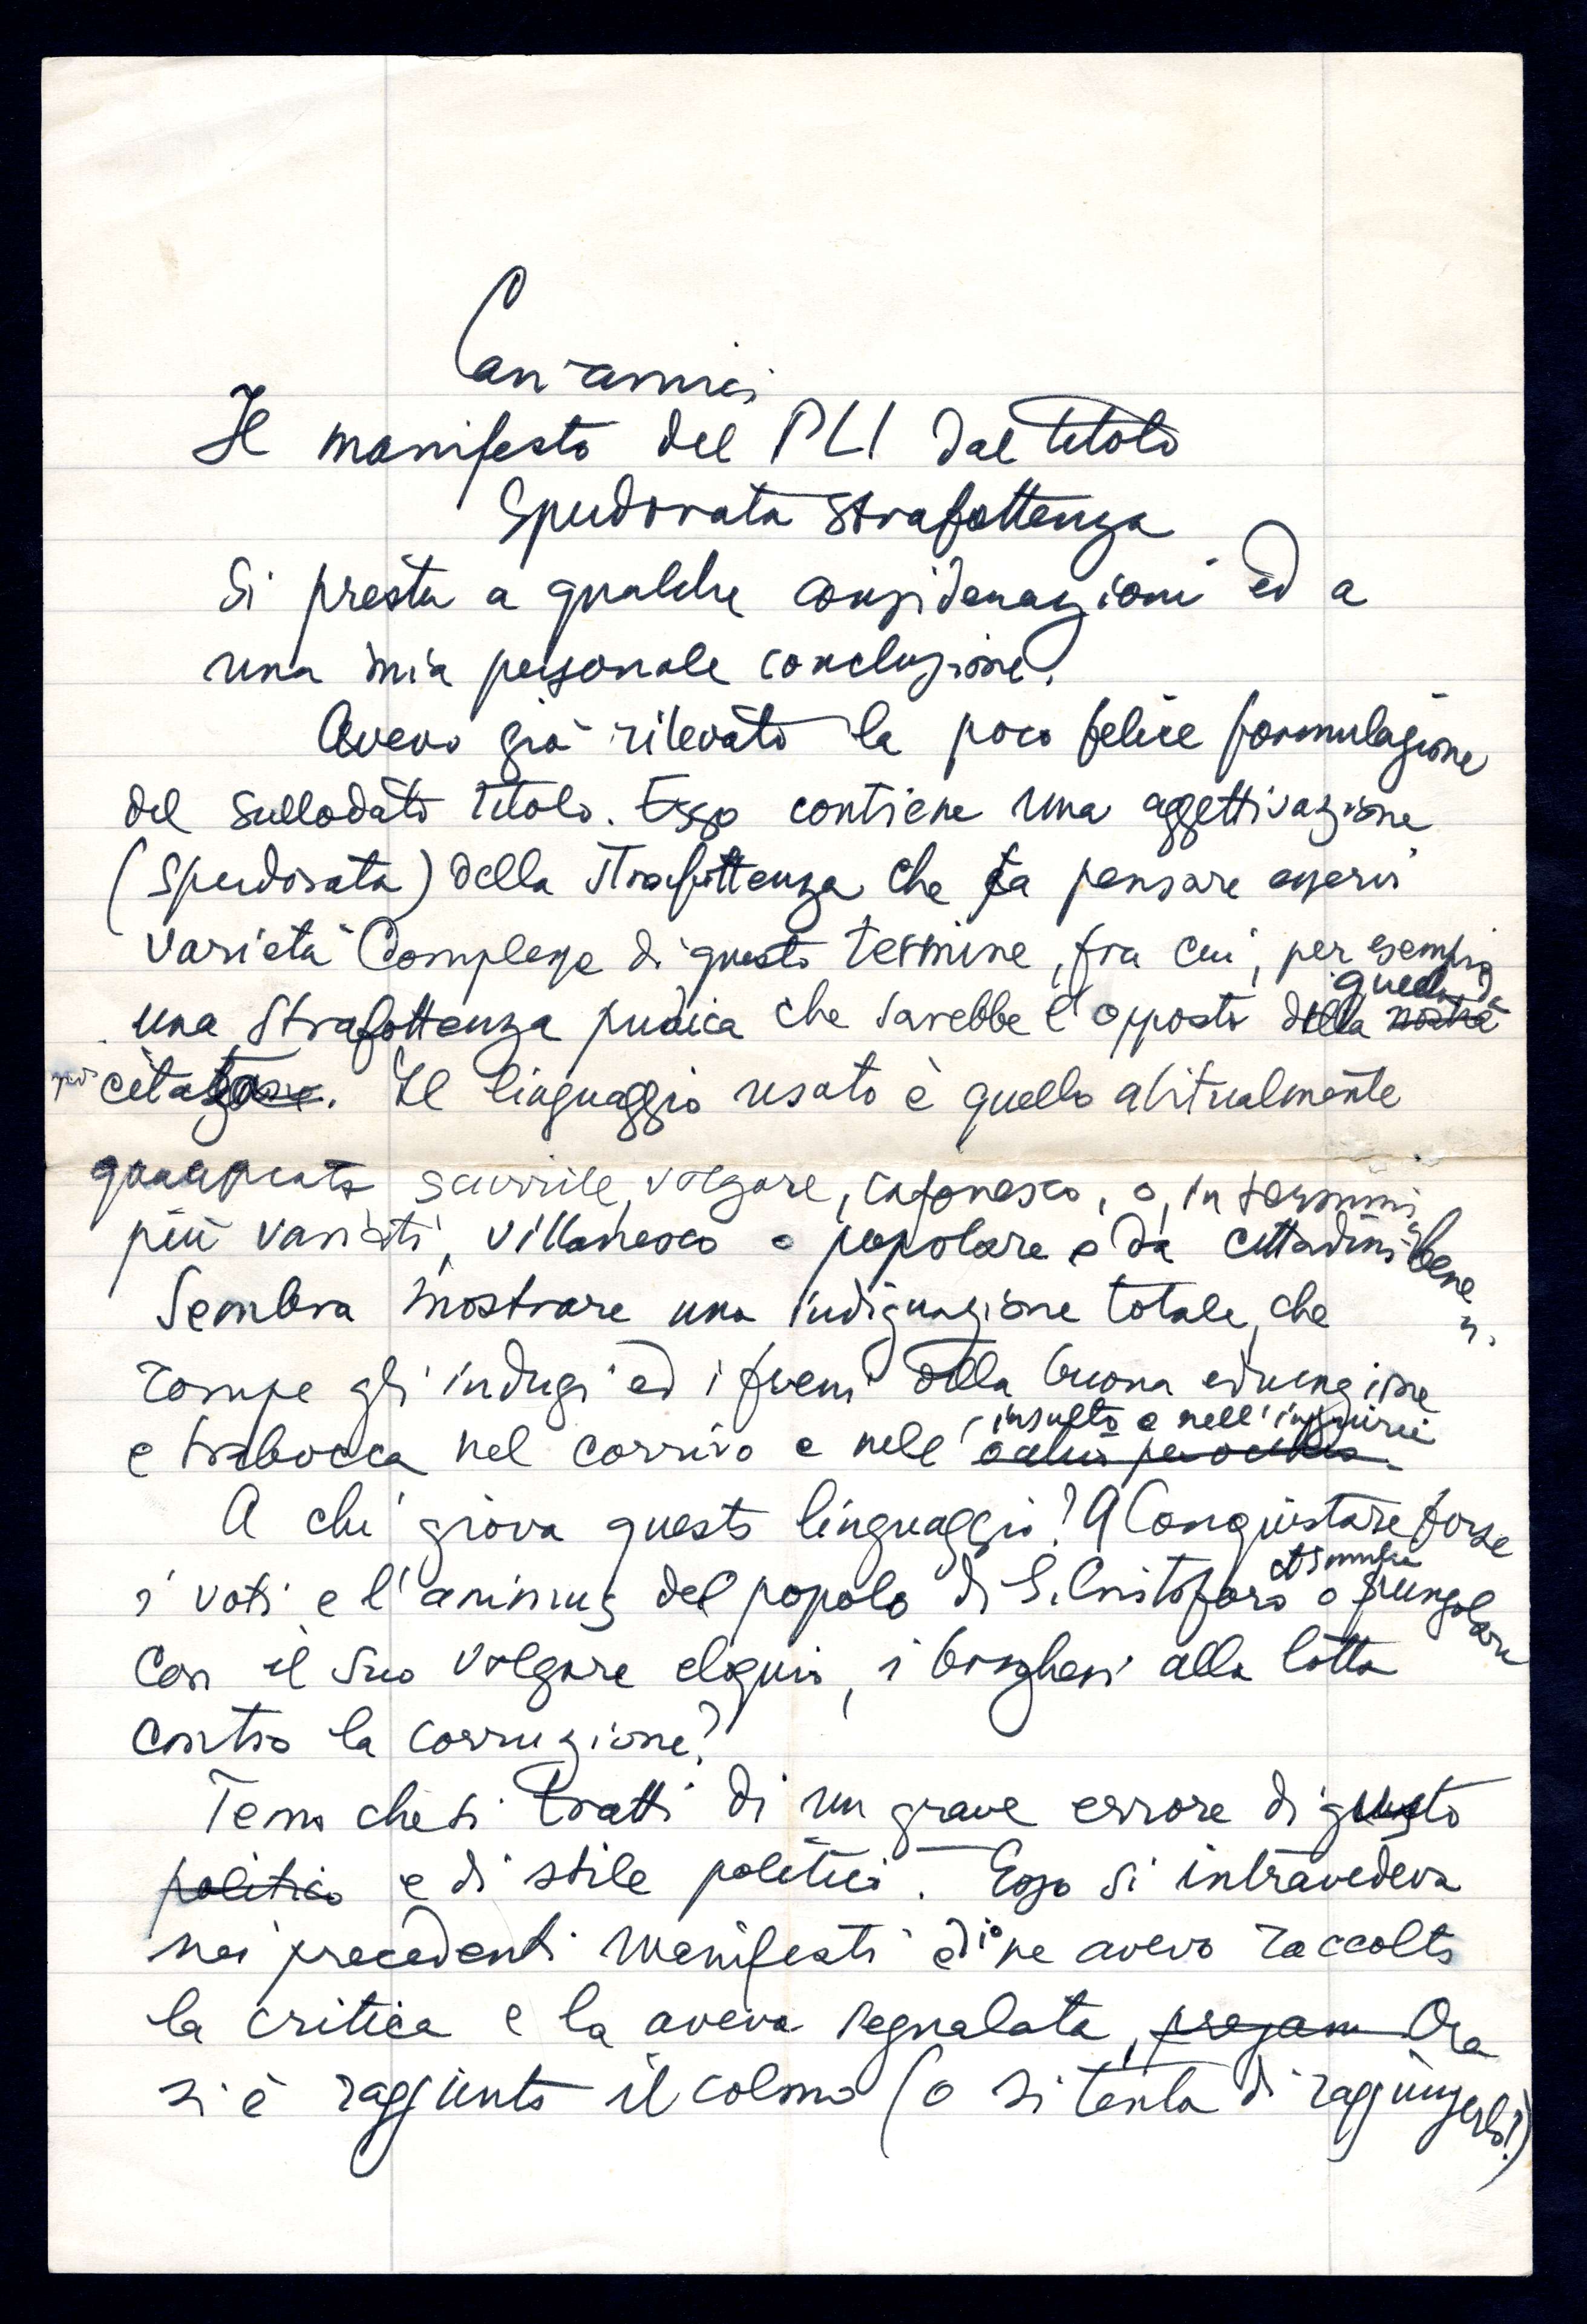 Cari amici
Il manifesto del PLI dal titolo
Spudorata strafottenza
Si presta a qualche considerazioni ed a
una mia personale conclusione.
Avevo già rilevato la poco felice formulazione
del sullodato titolo. Esso contiene una aggettivazione
(spudorata) della strafottenza che fa pensare esservi
varietà complesse di questo termine, fra cui, per esempio
una strafottenza pudica che sarebbe l'opposto della nostra quella da
citazione. Il linguaggio usato è quello abitualmente
scurrile, volgare, cafonesco, o, in termini
più variati, villanesco o popolare o da cittadini "bene
Sembra mostrare una indignazione totale, che
rompe gli indugi ed i freni della buona educazione
e trabocca nel corrivo e nell' insulto e nell'ingiuria
A chi giova questo linguaggio? A Conquistare forse
i voti e l'animus del popolo di S. Cristoforo o pungolare
con il suo volgare eloquio, i borghesi alla lotta
contro la corruzione?
Temo che si tratti di un grave errore di gusto
politico e di stile politici. Esso si intravedeva
nei precedenti manifesti ed io ne avevo raccolto
la critica e la aveva segnalata, Ora
si è raggiunto il colmo (o si tenta di raggiungerlo!)